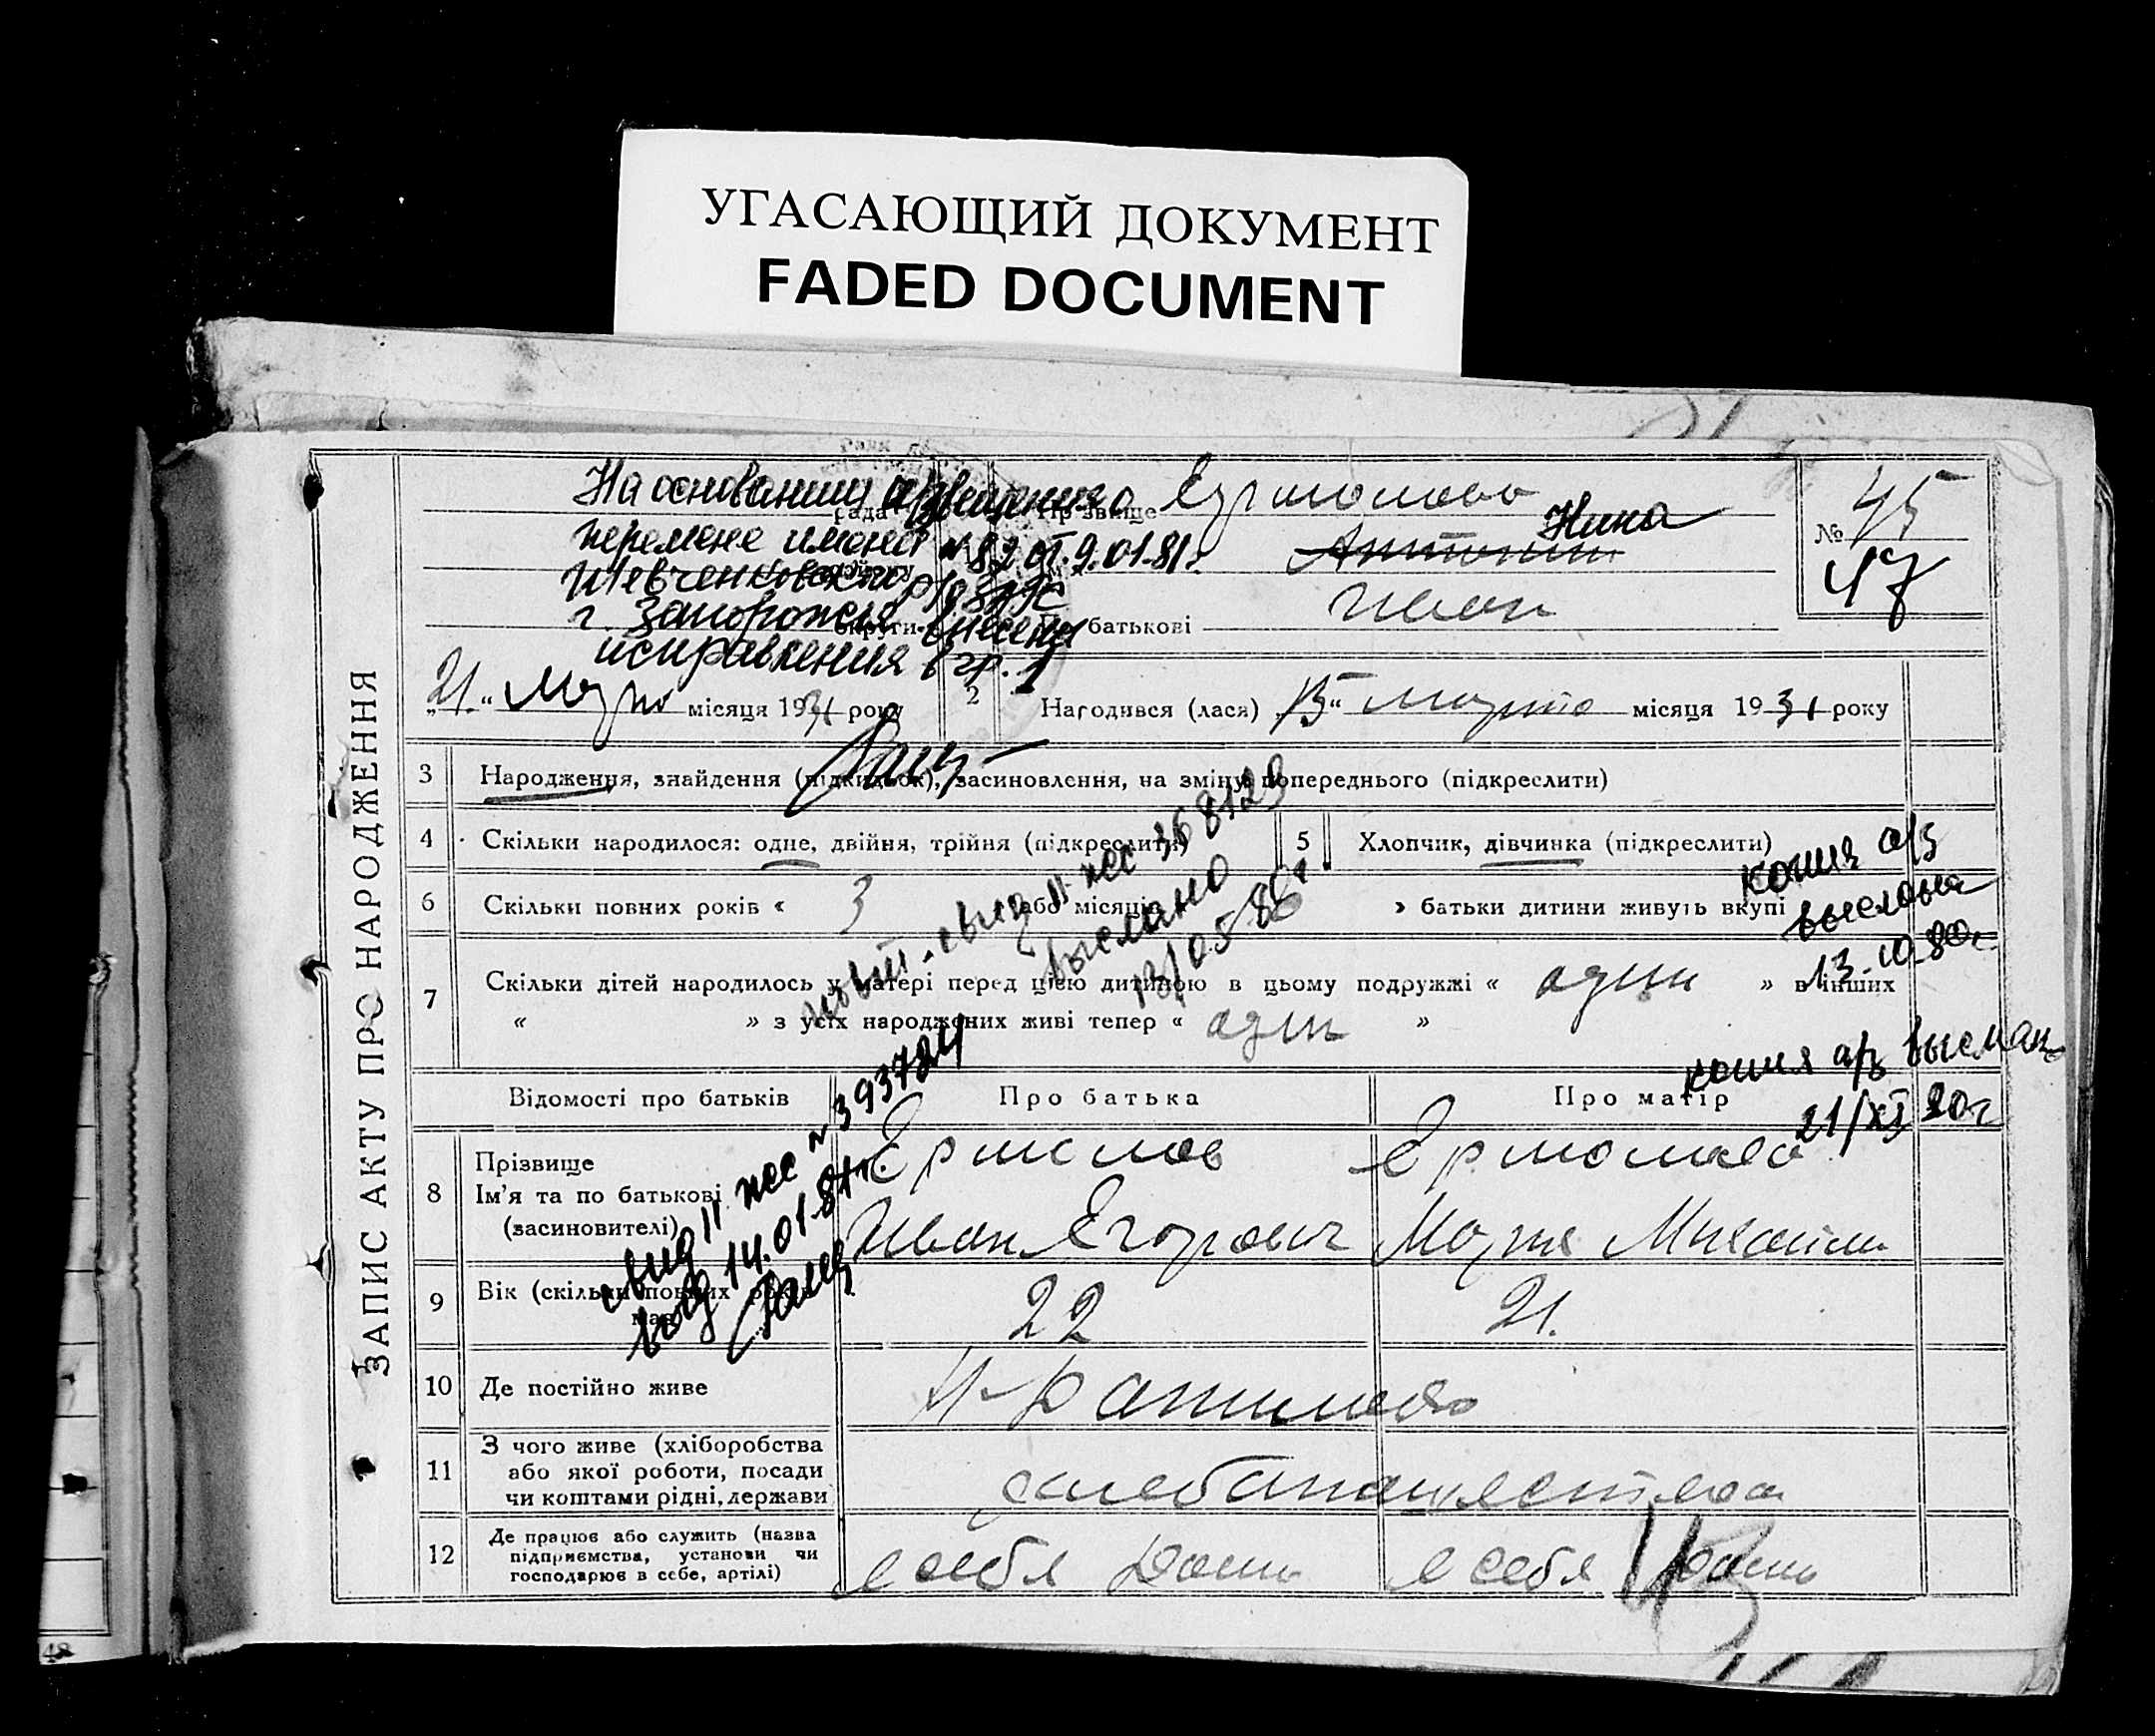 УГАСАЮЩИЙ ДОКУМЕНТ
FADED DOCUMENT
ЗАПИС АКТУ ПРО НАРОДЖЕННЯ
На основании извещения о
перемене имени № 82 от 9.01.81г.
Шевченковского р/ЗАГС
г. Запорожья внесены
исправления в гр. 1
рада
округи
Прізвище Ермолово
Антонин Нина
По батькові Иван
№ 45
47
„21“ марта місяця 1931 року
2 Народився (лася) „15“ марта місяця 1931 року
3 Народження, знайдення (підкидьок), засиновлення, на зміну попереднього (підкреслити)
4 Скільки народилося: одне, двійня, трійня (підкреслити)
5 Хлопчик, дівчинка (підкреслити)
6 Скільки повних років « 3 або місяців » батьки дитини живуть вкупі
7 Скільки дітей народилось у матері перед цією дитиною в цьому подружжі « один » в інших
« » з усіх народжених живі тепер « один »
повт. свид II жс 368129
выслано
13/05-86г
копия а/з
выслана
13-10-80г
копия а/з выслана
21/XI 80г
свид II жс № 393724
14.01.81г.
Відомості про батьків
Про батька
Про матір
8 Прізвище
Ім'я та по батькові
(засиновителі)
Ермолов
Иван Егорович
Ермолова
Мария Михайлов
9 Вік (скільки повних років
має)
22
21.
10 Де постійно живе
11 З чого живе (хліборобства
або якої роботи, посади
чи коштами рідні, держави
хлебопашеством
12 Де працює або служить (назва
підприємства, установи чи
господарює в себе, артілі)
в себя дома
в себя дома
48